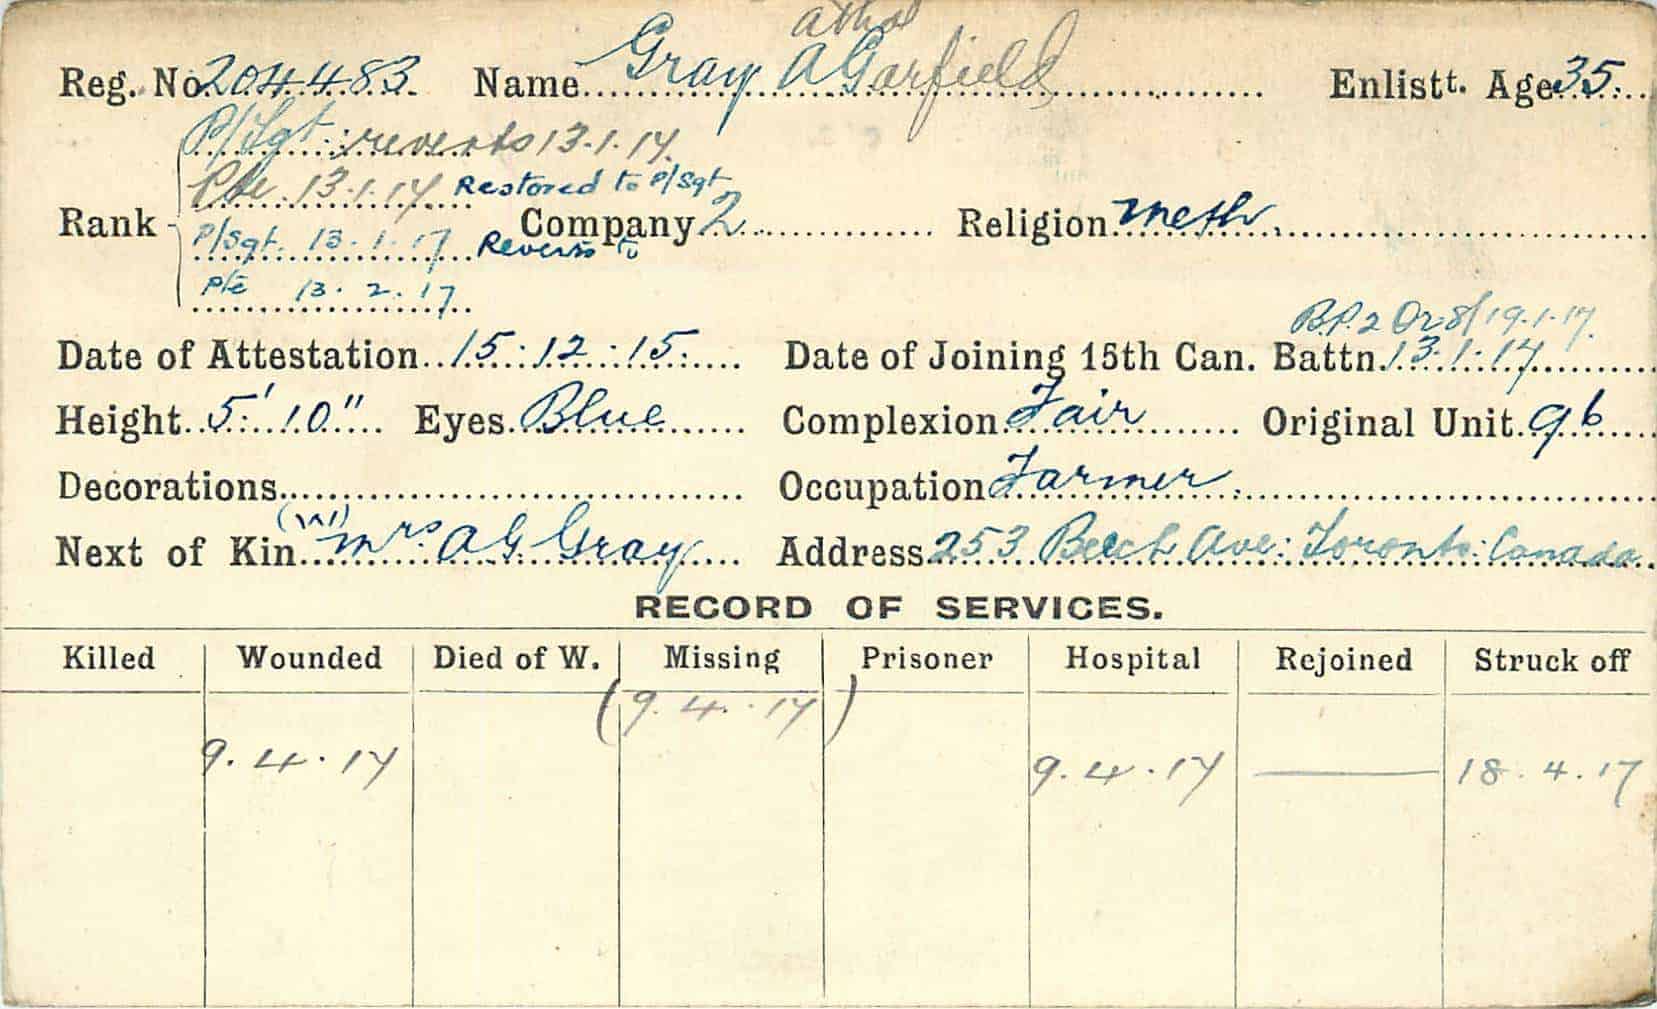 Athol
Reg. No. 204483 Name Gray A Garfield Enlistt. Age 35
P/Sgt. reverts 13.1.17.
Pte. 13.1.17 Restored to P/Sgt
Rank Company 2 Religion Meth.
P/Sgt. 13.1.17 Reverts to
Pte 13.2.17
B.P.2 Or 8/19.1.17.
Date of Attestation 15.12.15. Date of Joining 15th Can. Battn. 13.1.17
Height 5' 10" Eyes Blue Complexion Fair Original Unit 96
Decorations Occupation Farmer.
(W)
Next of Kin Mrs. A G Gray Address 253 Beech Ave: Toronto: Canada.
RECORD OF SERVICES.
Killed Wounded Died of W. Missing Prisoner Hospital Rejoined Struck off
(9.4.17)
9.4.17 9.4.17 — 18.4.17